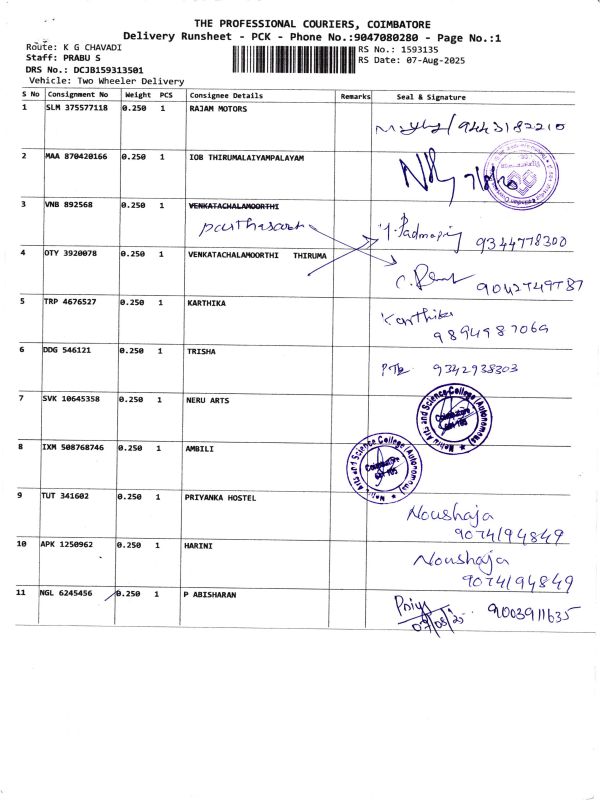 THE PROFESSIONAL COURIERS, COIMBATORE
Delivery Runsheet - PCK - Phone No.:9047080280 - Page No.:1
Route: K G CHAVADI
RS No.: 1593135
Staff: PRABU S
RS Date: 07-Aug-2025
DRS No.: DCJB159313501
Vehicle: Two Wheeler Delivery
S No Consignment No Weight PCS Consignee Details Remarks Seal & Signature
1 SLM 375577118 0.250 1 RAJAM MOTORS
/9443182210
2 MAA 870420166 0.250 1 IOB THIRUMALAIYAMPALAYAM
3 VNB 892568 0.250 1 VENKATACHALAMOORTHI
9344778300
4 OTY 3920078 0.250 1 VENKATACHALAMOORTHI THIRUMA
9042749787
5 TRP 4676527 0.250 1 KARTHIKA
Karthika
9894987069
6 DDG 546121 0.250 1 TRISHA
9342938303
7 SVK 10645358 0.250 1 NERU ARTS
Nehru Arts and Science College (Autonomous)
Coimbatore
641 105
8 IXM 508768746 0.250 1 AMBILI
Nehru Arts and Science College (Autonomous)
Coimbatore
641 105
9 TUT 341602 0.250 1 PRIYANKA HOSTEL
Noushaja
9074194849
10 APK 1250962 0.250 1 HARINI
Noushaja
9074194849
11 NGL 6245456 0.250 1 P ABISHARAN
Priya 9003911635
07/08/25